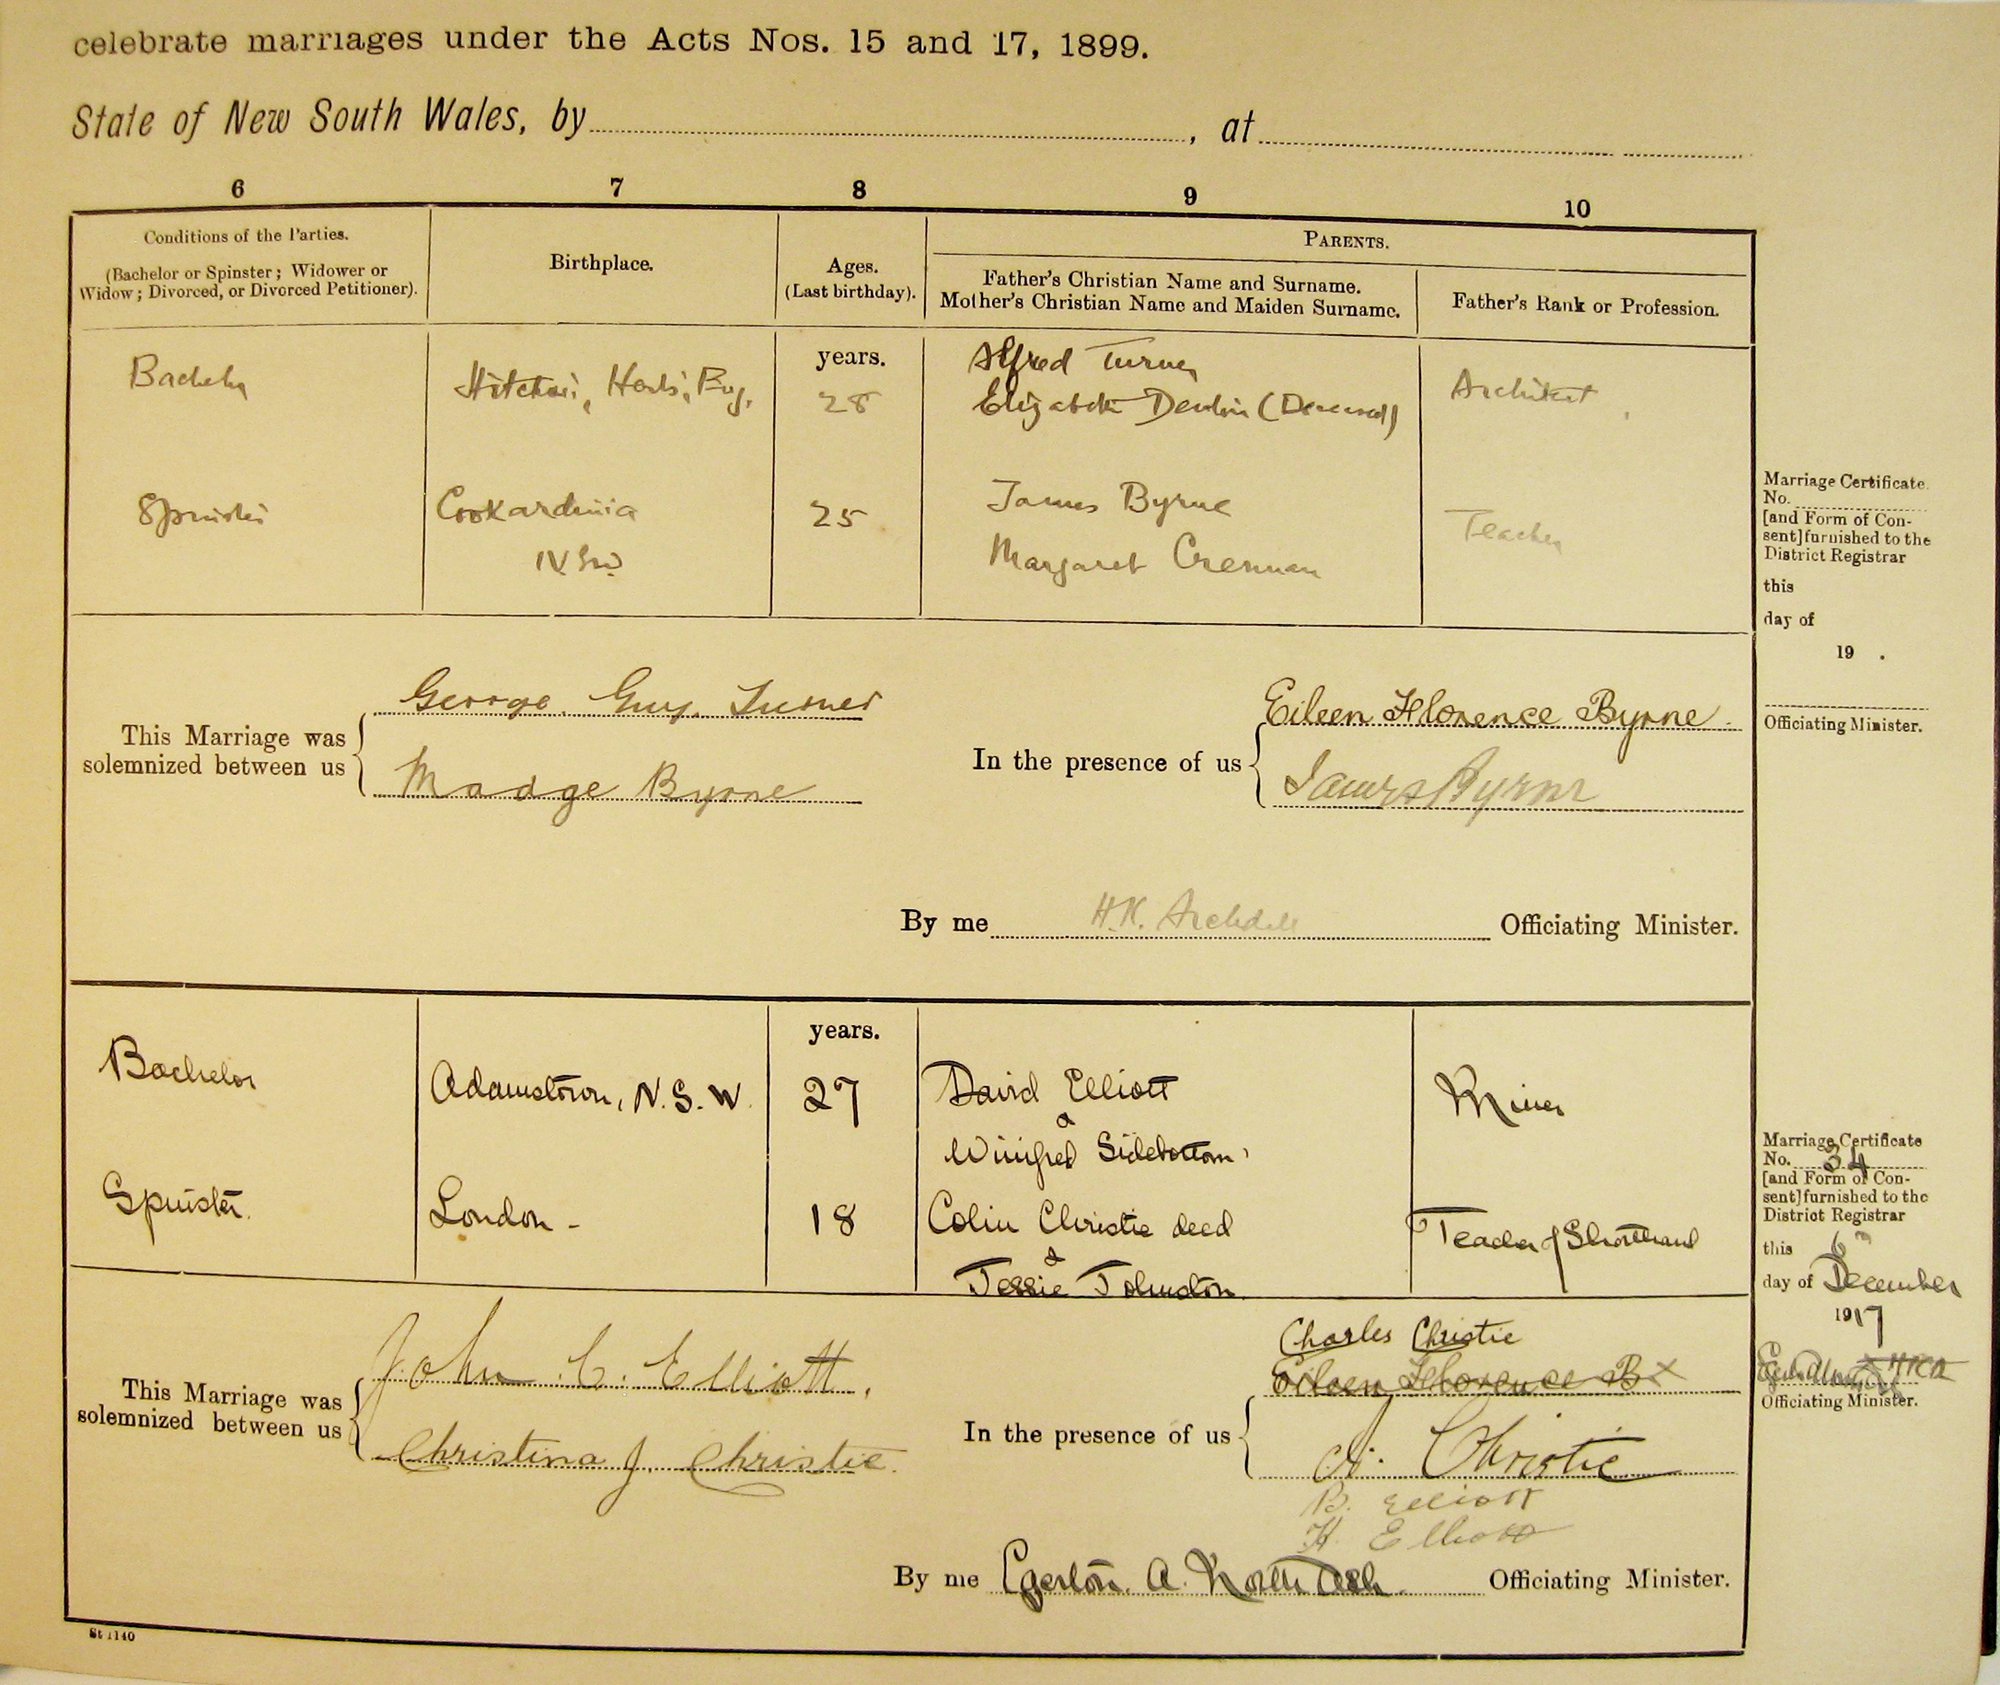 celebrate marriages under the Acts Nos. 15 and 17, 1899.
State of New South Wales, by , at
6 7 8 9 10
Conditions of the Parties.
(Bachelor or Spinster; Widower or
Widow; Divorced, or Divorced Petitioner).
Birthplace.
Ages.
(Last birthday).
PARENTS.
Father's Christian Name and Surname.
Mother's Christian Name and Maiden Surname.
Father's Rank or Profession.
years.
Bachelor
Hitchin, Herts, Eng.
28
Alfred Turner
Elizabeth (Deceased)
Architect
Spinster
Cookardinia
NSW
25
James Byrne
Margaret Crennan
Teacher
Marriage Certificate
No.
[and Form of Con-
sent] furnished to the
District Registrar
this
day of
19 .
Officiating Minister.
This Marriage was
solemnized between us
George Guy Turner
Madge Byrne
In the presence of us
Eileen Florence Byrne
James Byrne
By me H.K. Archdall Officiating Minister.
years.
Bachelor
Adamstown, N.S.W.
27
David Elliott
&
Winifred Sidebottom
Miner
Spinster
London -
18
Colin Christie decd
&
Jessie Johnston
Teacher of Shorthand
Marriage Certificate
No. 34
[and Form of Con-
sent] furnished to the
District Registrar
this 6
day of December
1917
Officiating Minister.
This Marriage was
solemnized between us
John C. Elliott.
Christina J. Christie.
In the presence of us
Charles Christie
Eileen Florence B
Christie
B. Elliott
H. Elliott
By me Egerton. A. North Ash. Officiating Minister.
St 1140